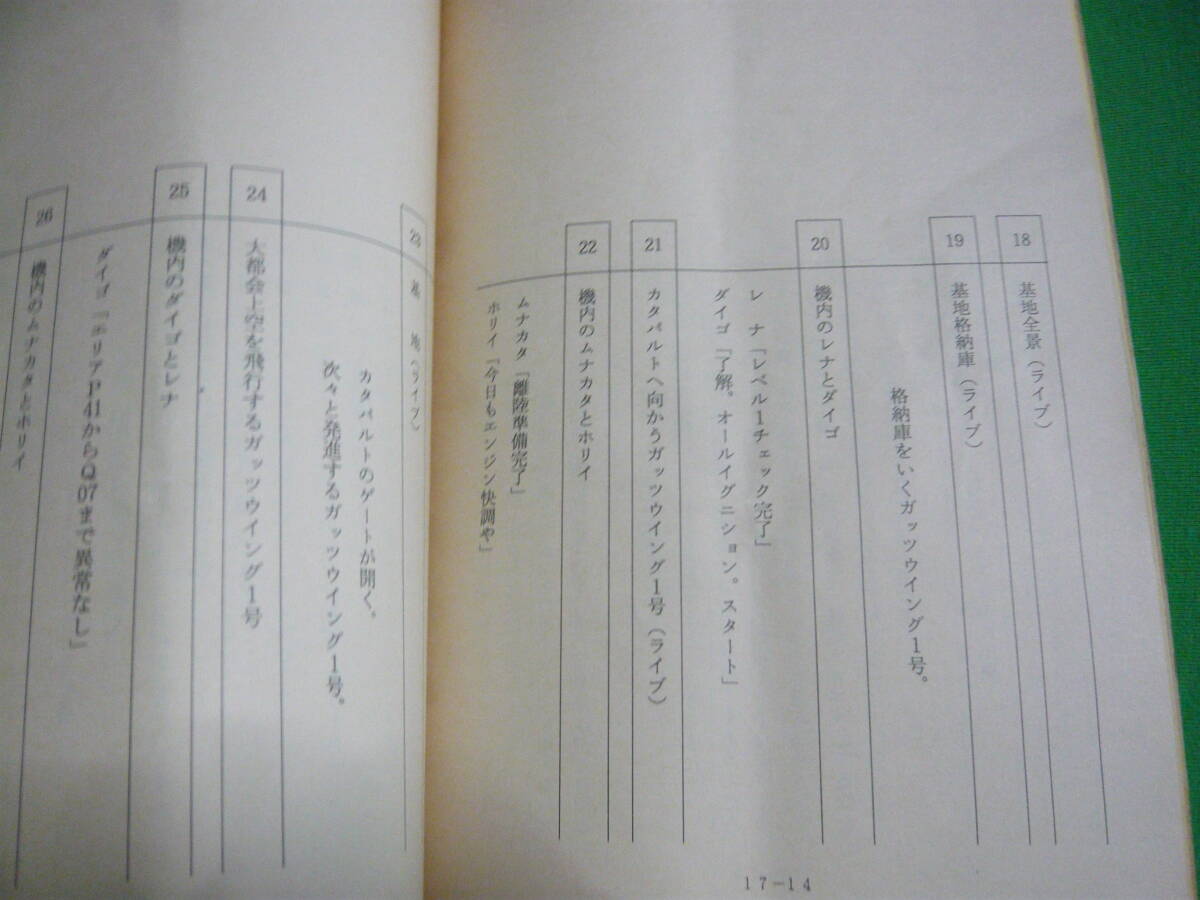 18 基地全景(ライブ)
19 基地格納庫(ライブ)
格納庫をいくガッツウイング1号。
20 機内のレナとダイゴ
レ ナ「レベル1チェック完了」
ダイゴ「了解。オールイグニション。スタート」
21 カタパルトへ向かうガッツウイング1号(ライブ)
22 機内のムナカタとホリイ
ムナカタ「離陸準備完了」
ホリイ「今日もエンジン快調や」
17-14
23 基 地(ライブ)
カタパルトのゲートが開く。
次々と発進するガッツウイング1号。
24 大都会上空を飛行するガッツウイング1号
25 機内のダイゴとレナ
ダイゴ「エリアP41からQ07まで異常なし」
26 機内のムナカタとホリイ